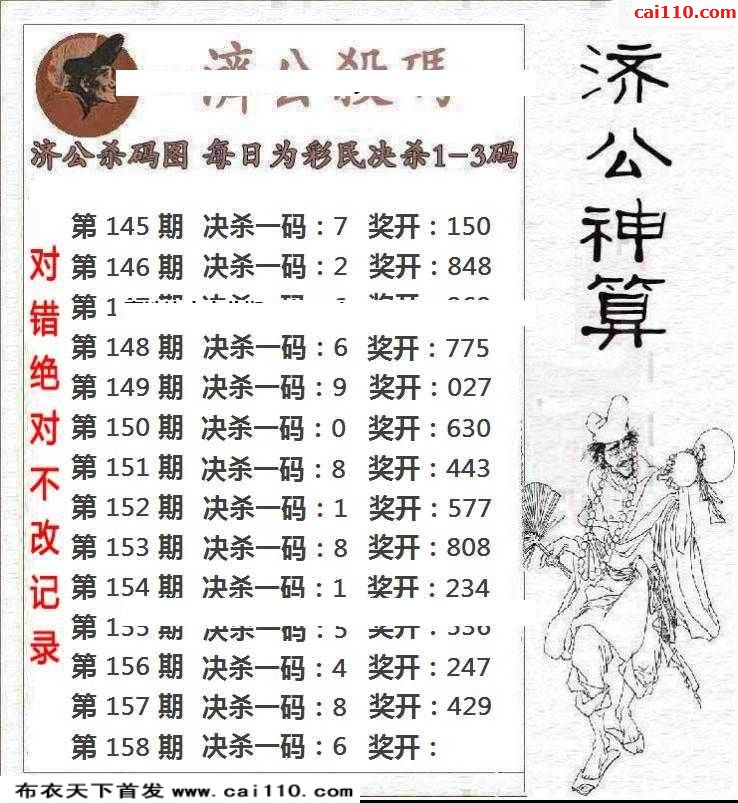 cai110.com
濟公殺碼
济公杀码图 每日为彩民决杀1-3码
济公神算
对错绝对不改记录
第 145 期 决杀一码:7 奖开:150
第 146 期 决杀一码:2 奖开:848
第 1
第 148 期 决杀一码:6 奖开:775
第 149 期 决杀一码:9 奖开:027
第 150 期 决杀一码:0 奖开:630
第 151 期 决杀一码:8 奖开:443
第 152 期 决杀一码:1 奖开:577
第 153 期 决杀一码:8 奖开:808
第 154 期 决杀一码:1 奖开:234
第 155 期 决杀一码:5 奖开:
第 156 期 决杀一码:4 奖开:247
第 157 期 决杀一码:8 奖开:429
第 158 期 决杀一码:6 奖开:
布衣天下首发 www.cai110.com